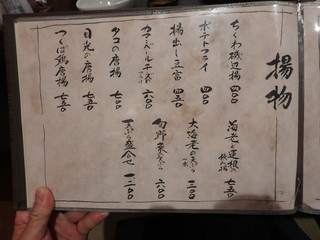 揚物
ちくわ磯辺揚 四〇〇
ポテトフライ
揚出し豆富 四五〇
カマンベールチーズ 六〇〇
タコの唐揚 七〇〇
目光の唐揚 七五〇
つくば鶏唐揚 七五〇
海老と蓮根の 七五〇
大海老の天ぷら 一本
野菜天ぷら 六〇〇
天ぷら盛合せ 一、二〇〇